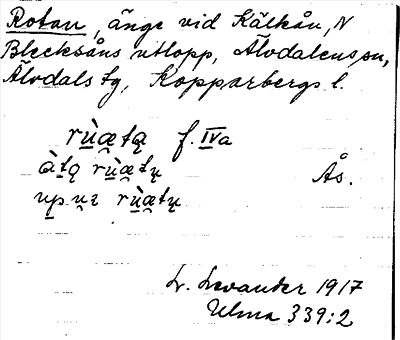 Rotan, änge vid Kälkån, N
Blecksåns utlopp, Älvdalens sn,
Älvdals tg, Kopparbergs l.
rùæta̧ f. IVa
à̧tǫ rùætų Ås.
up̱ ųr rùætų
L. Levander 1917
Ulma 339:2